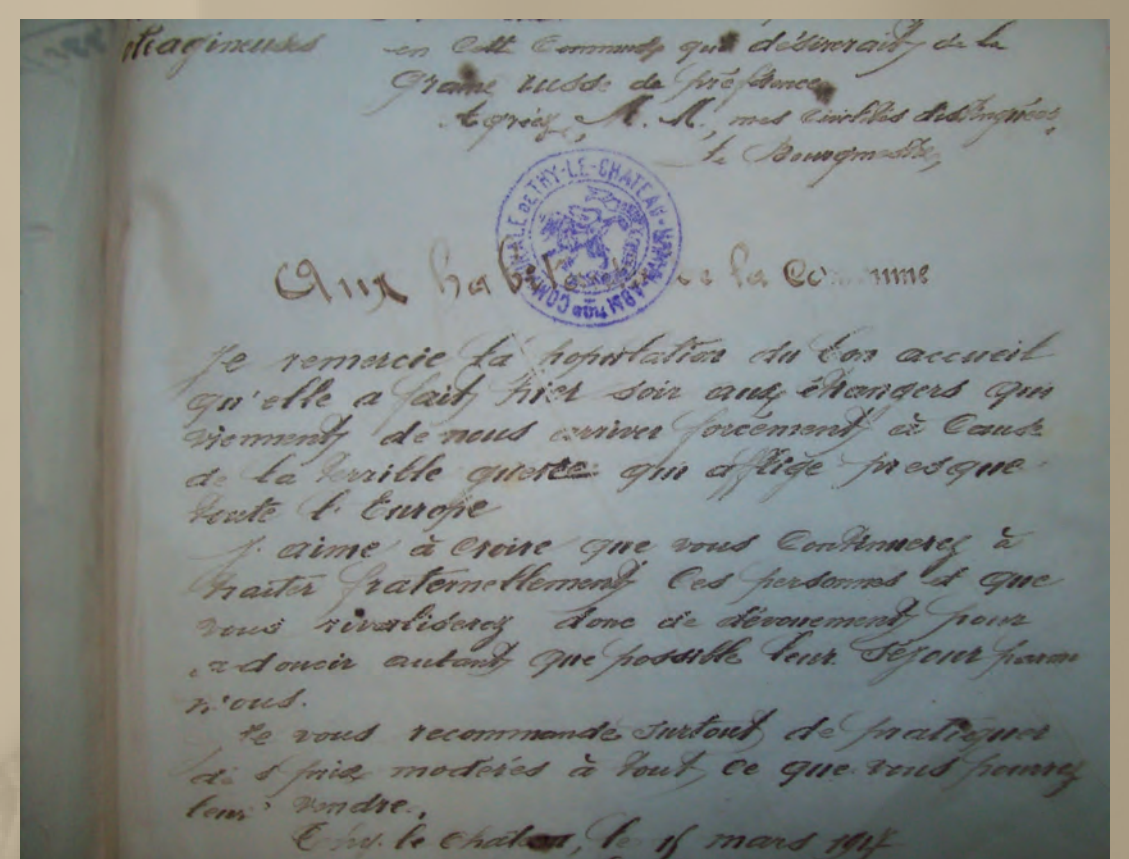 en cette Commune qui désirerait de la
Graine russe de préférence
Agréez, M. M., mes civilités distinguées,
Le Bourgmestre,
COMMUNALE DE THY-LE-CHATEAU
Aux habitants de la Commune
Je remercie la population du bon accueil
qu'elle a fait hier soir aux étrangers qui
viennent de nous arriver forcément à cause
de la terrible guerre qui afflige presque
toute l'Europe
J'aime à croire que vous continuerez à
traiter fraternellement ces personnes et que
vous rivaliserez donc de dévouement pour
adoucir autant que possible leur séjour parmi
nous.
Je vous recommande surtout de pratiquer
des prix modérés à tout ce que vous pourrez
leur vendre.
Thy-le-Château, le 15 mars 1917